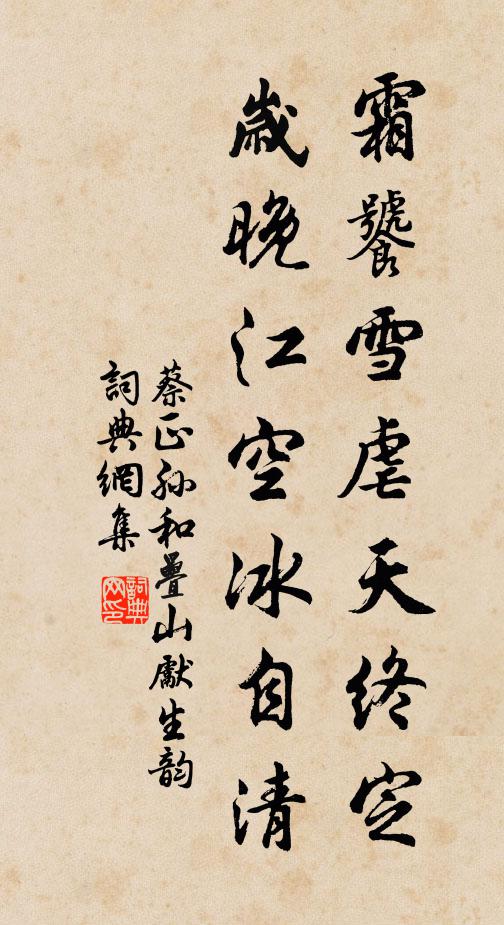 霜饕雪虐天終定
歲晚江空冰自清
蔡正孫和疊山獻生韵
詞典網集
詞典網印